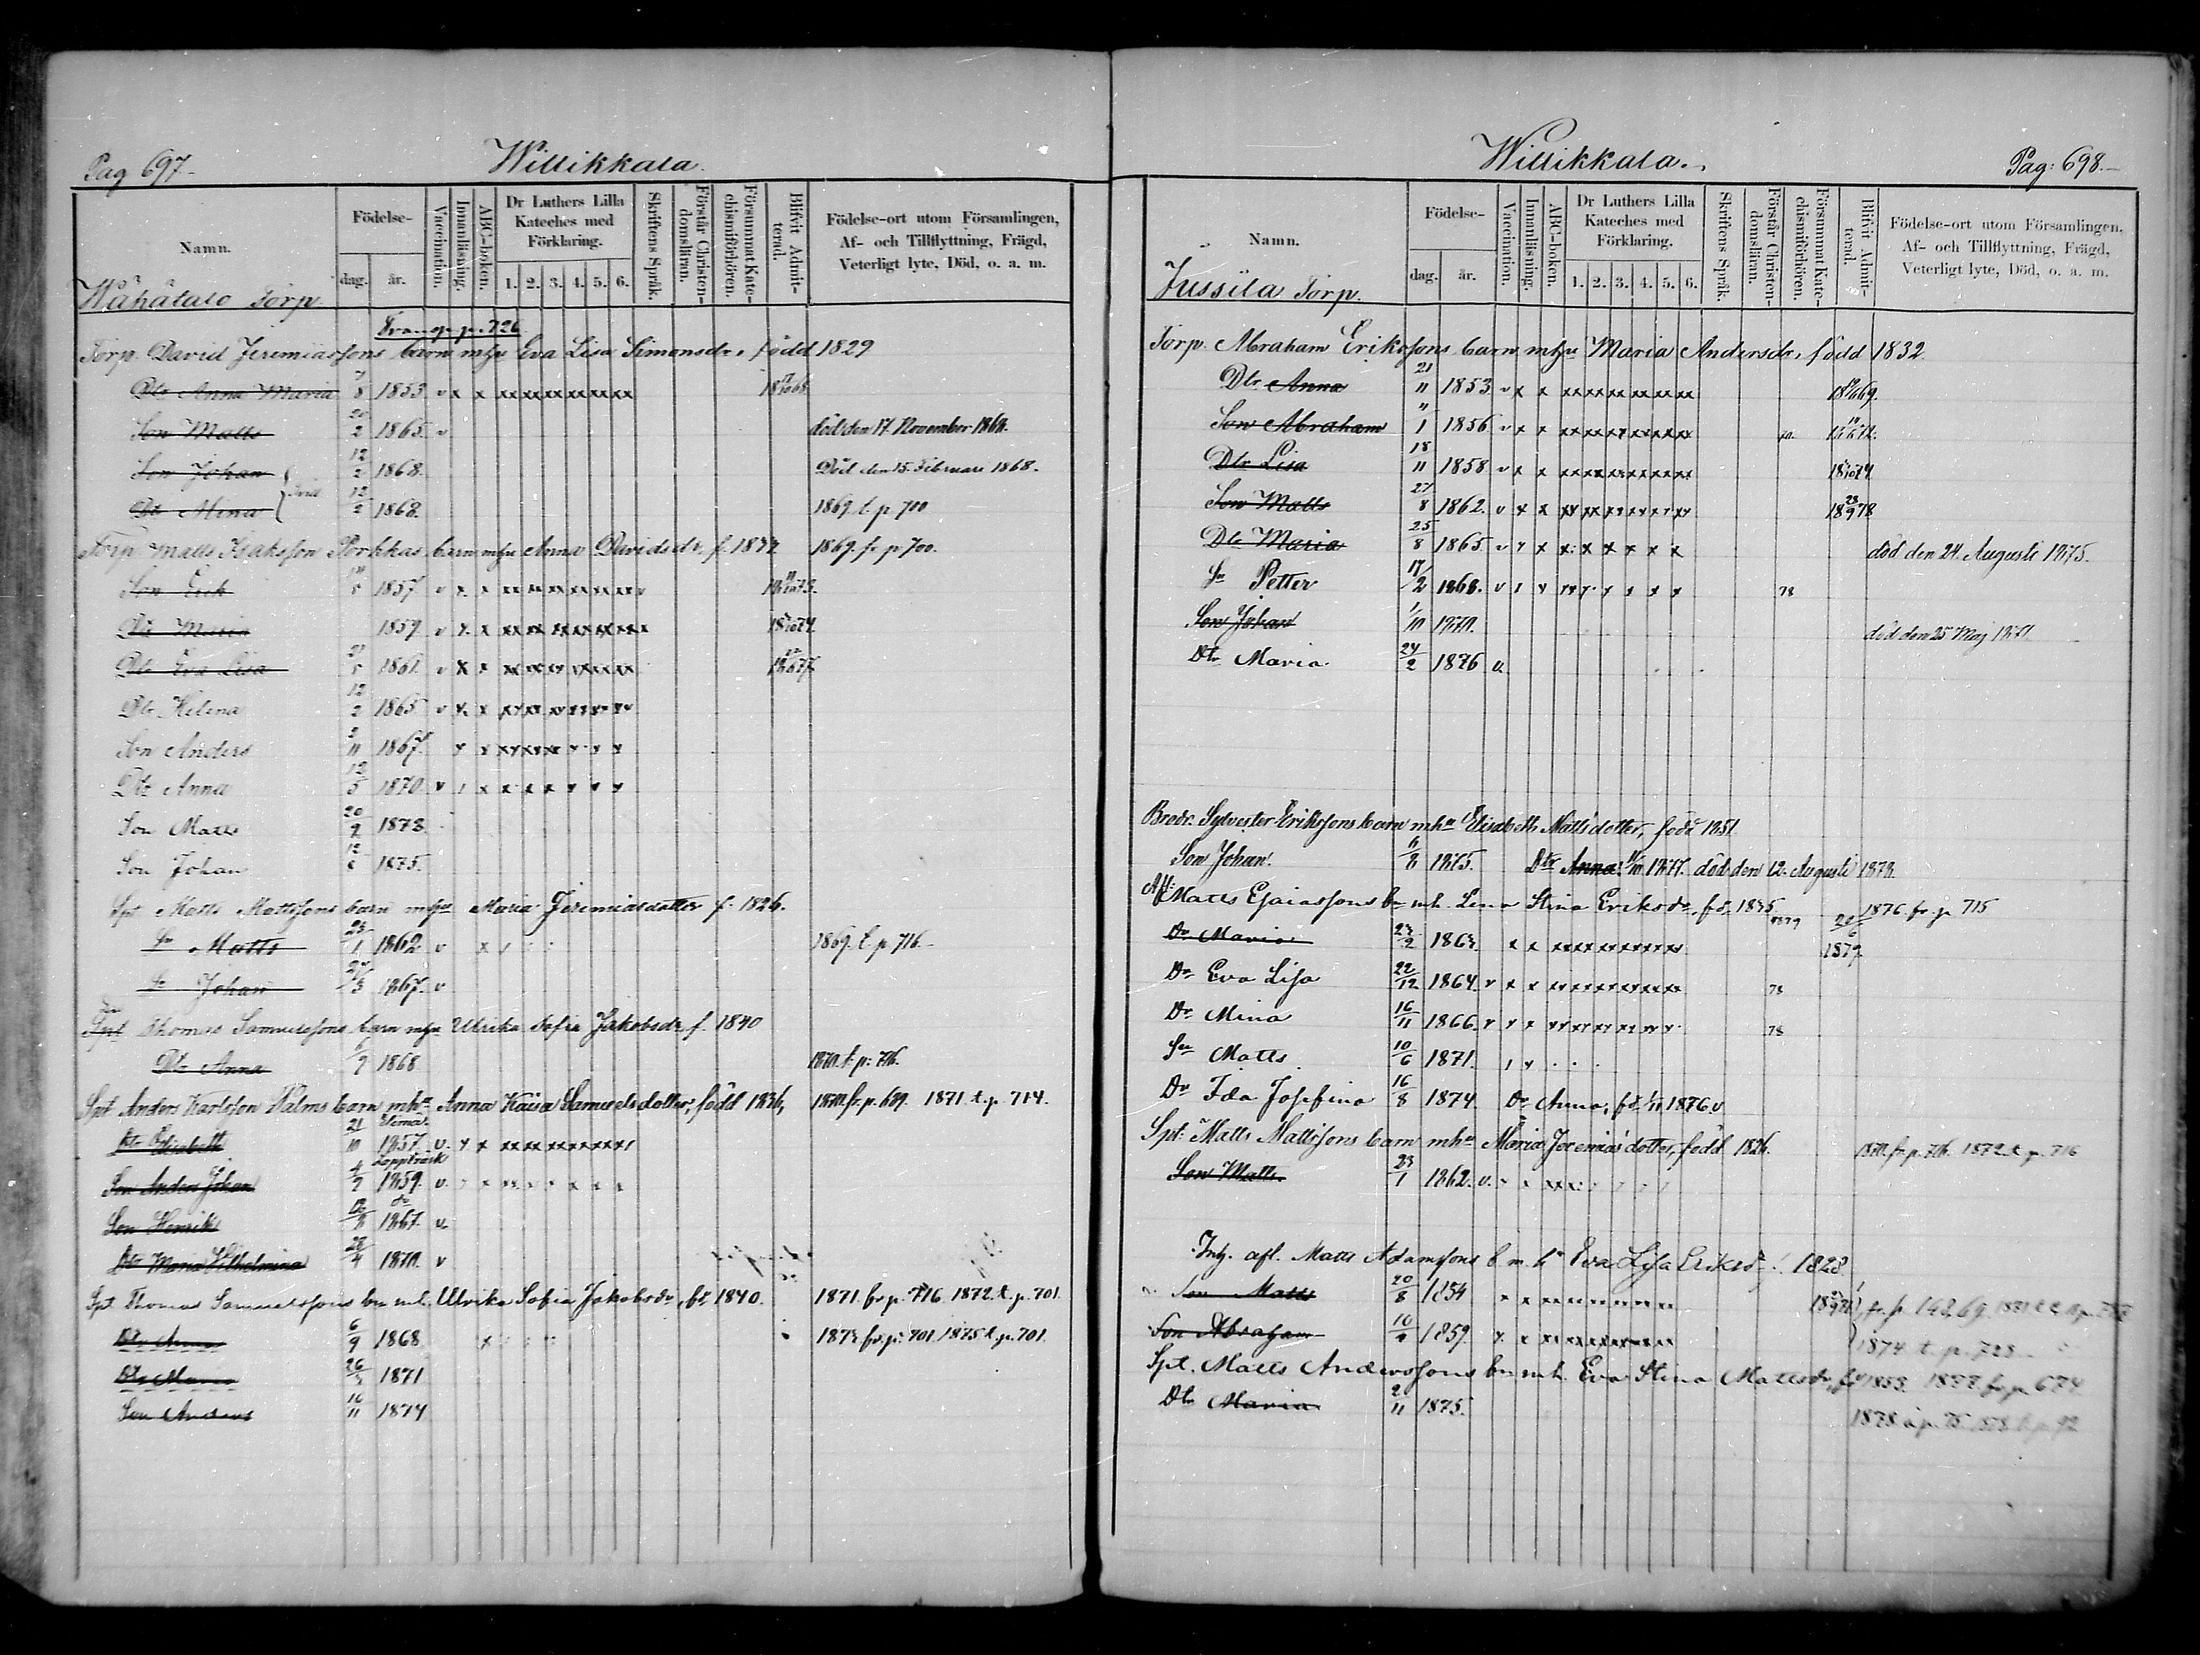 Pag 697.
Willikkala.
Namn.
Födelse-
dag.
år.
Vaccination.
Innanläsning.
ABC-boken.
Dr Luthers Lilla Kateches med Förklaring.
1. 2. 3. 4. 5. 6.
Skriftens Språk.
Förstår Christendomsläran.
Försummat Katechismiförhören.
Blifvit Admitterad.
Födelse-ort utom Församlingen,
Af- och Tillflyttning, Frägd,
Veterligt lyte, Död, o. a. m.
Wähätalo Torp
Transp. p. 726
Torp. David Jeremiassons barn mhu Eva Lisa Simonsdr, född 1829
Dtr Anna Maria 7/8 1853 v x x
Son Matts 20/2 1865 v död den 17 November 1868.
Son Johan 12/2 1868. Död den 15 Februari 1868.
Dtr Mina 12/2 1868. 1869 t. p 700
Torp Matts Isaksson Porkkas barn mhu Anna Davidsdr, f. 1833 1869 fr p 700.
Son Erik 1857 v x x
Dtr Maria 1859 v x x
Dtr Eva Lisa 1861 v x x
Dtr Helena 12/2 1865 v x x
Son Anders 2/11 1867 x x
Dtr Anna 12/5 1870 v x
Son Matts 20/9 1873
Son Johan 12/6 1875.
Spt Matts Mattssons barn mhu Maria Jeremiasdotter f. 1826.
Sn Matts 23/1 1862 v x 1869. t. p 716.
Sn Johan 1867. v
Thomas Samuelssons barn mhu Ulrika Sofia Jakobsdr, f. 1840
Dtr Anna 6/9 1868 1870. t. p: 716.
Spt Anders Karlsson Palms barn mhu Anna Kaisa Samuelsdotter, född 1836, 1870. fr. p. 69. 1871 t. p 714.
Dtr Elisabeth 21/10 Elimä 1857 v. x x
Son Anders Johan 4/9 Lappträsk 1859. v.
Son Henrik 12/8 do 1867. v.
Dtr Maria Wilhelmina 28/4 1870. v
Spt Thomas Samuelssons bn mh. Ulrika Sofia Jakobsdr, fd. 1840. 1871. fr p. 716. 1872. t. p. 701.
Dtr Anna 6/9 1868 1873 fr. p: 701. 1875 t. p. 701.
Dtr Maria 26/3 1871
Son Anders 16/11 1874
Willikkala.
Pag: 698.
Namn.
Födelse-
dag.
år.
Vaccination.
Innanläsning.
ABC-boken
Dr Luthers Lilla Kateches med Förklaring.
1. 2. 3. 4. 5. 6.
Skriftens Språk.
Förstår Christendomsläran.
Försummat Katechismiförhören.
Blifvit Admitterad.
Födelse-ort utom Församlingen,
Af- och Tillflyttning, Frägd,
Veterligt lyte, Död, o. a. m.
Jussila Torp.
Torp. Abraham Erikssons barn mhu Maria Andersdr, född 1832.
Dtr Anna 21/11 1853 v x x
Son Abraham 11/1 1856 v x x
Dtr Lisa 18/11 1858 v x x
Son Matts 27/8 1862. v x x
Dtr Maria 25/8 1865. v x x död den 24. Augusti 1875.
Sn Petter 17/2 1868. v 78
Son Johan 1/10 1870. död den 25 Maj 1871
Dtr Maria 24/2 1876 v.
Brodr. Sylvester Erikssons barn mhu Elisabeth Mattsdotter, född 1851
Son Johan. 6/8 1875. Dtr Anna 11/10 1877. död den 12. Augusti 1878.
Afl: Matts Esaiassons bn mh. Lena Stina Eriksdr, fd. 1835 1876. fr. p 715
Dr Maria 23/2 1863. x x 1879
Dr Eva Lisa 22/12 1864. v x x 78
Dr Mina 16/11 1866. v x x 78
Sn Matts 10/6 1871.
Dr Ida Josefina 16/8 1874. Dr Anna, fd. 1/11 1876. v
Spt: Matts Mattssons barn mhu Maria Jeremiasdotter, född 1826. 1870. fr. p. 716. 1872 t. p 716
Son Matts 23/1 1862. v.
Inh. afl. Matts Adamssons b. m. h. Eva Lisa Eriksdr 1828.
Son Matts 20/8 1854
Son Abraham 1859. 1874 t. p. 728
Spt. Matts Anderssons bn mh. Eva Stina Mattsdr, fd 1853. 1877. fr. p 674
Dtr Maria 2/11 1875.